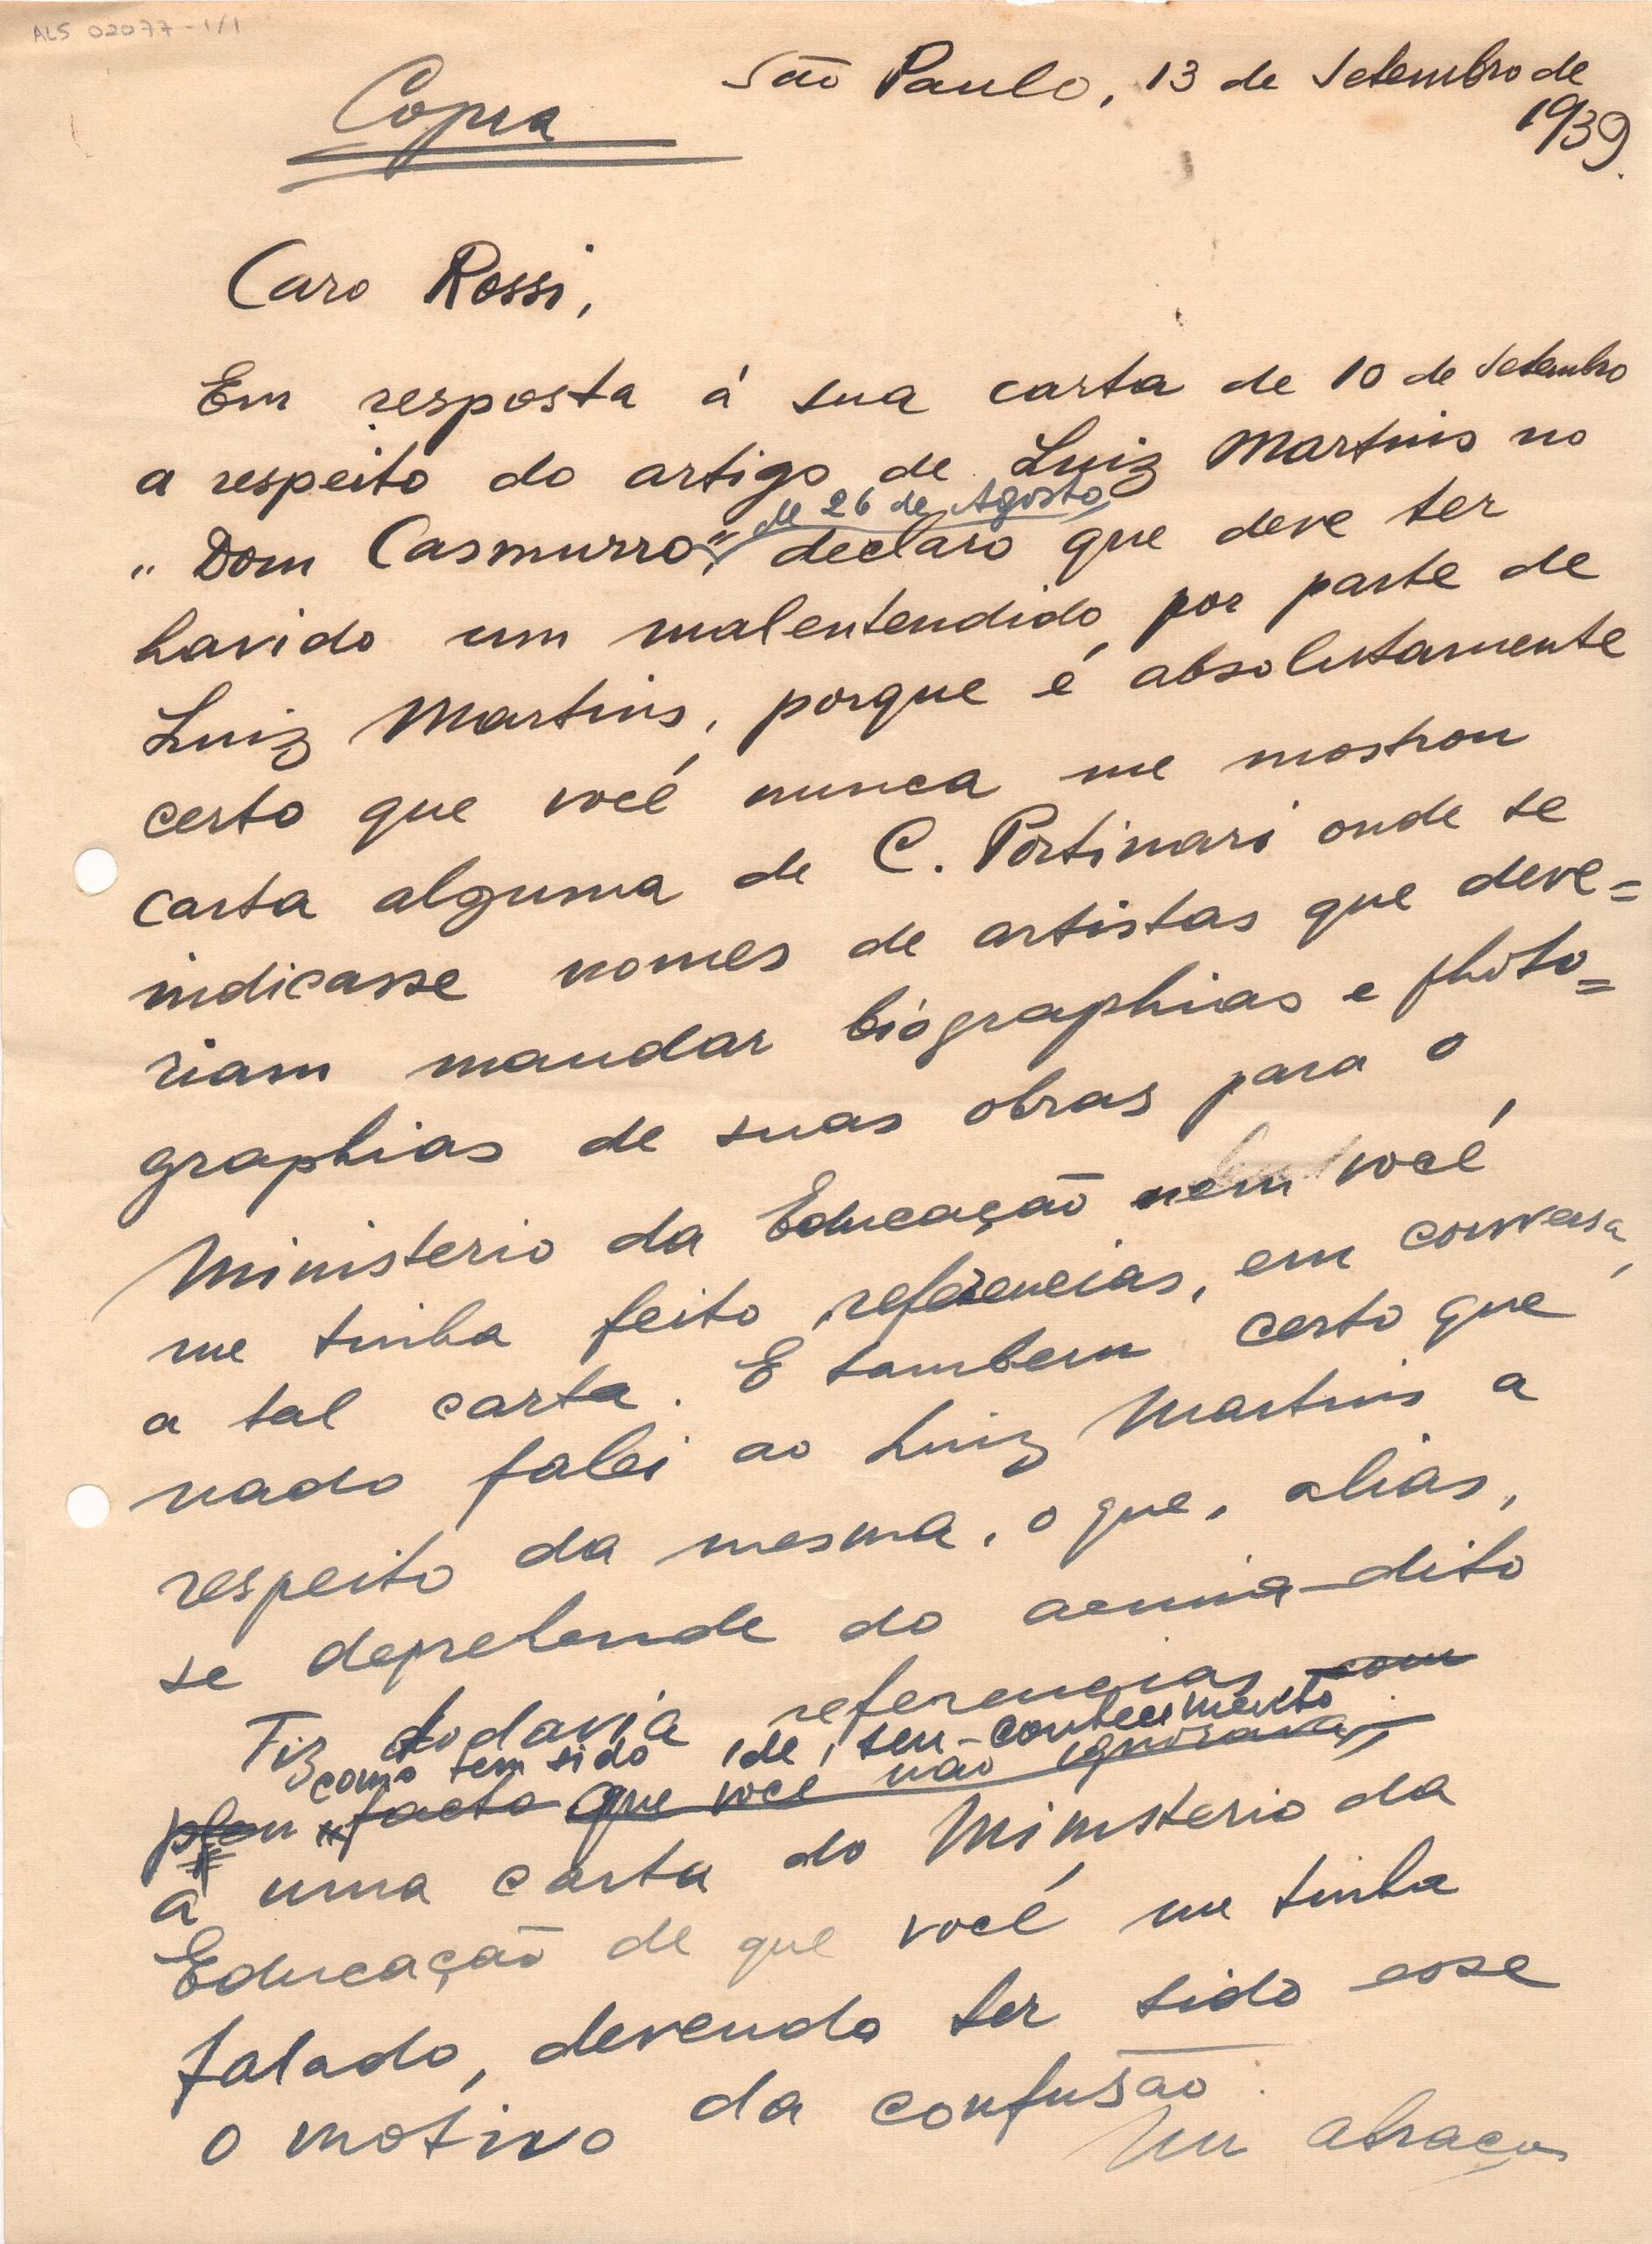 ALS 02077-1/1
Copia
São Paulo, 13 de Setembro de
1939.
Caro Rossi,
Em resposta á sua carta de 10 de Setembro
a respeito do artigo de Luiz Martins no
de 26 de Agosto
"Dom Casmurro", declaro que deve ter
havido um malentendido por parte de
Luiz Martins, porque é absolutamente
certo que você nunca me mostrou
carta alguma de C. Portinari onde se
indicasse nomes de artistas que deve=
riam mandar biographias e photo=
graphias de suas obras para o
Ministerio da Educação nem você
me tinha feito referencias, em conversa,
a tal carta. E tambem certo que
nada falei ao Luiz Martins a
respeito da mesma, o que, aliás,
se deprehende do acima-dito
Fiz todavia referencias com
como tem sido de seu conhecimento
facto que você não ignorava,
a uma carta do Ministerio da
Educação de que você me tinha
falado, devendo ter sido esse
o motivo da confusão.
Um abraço